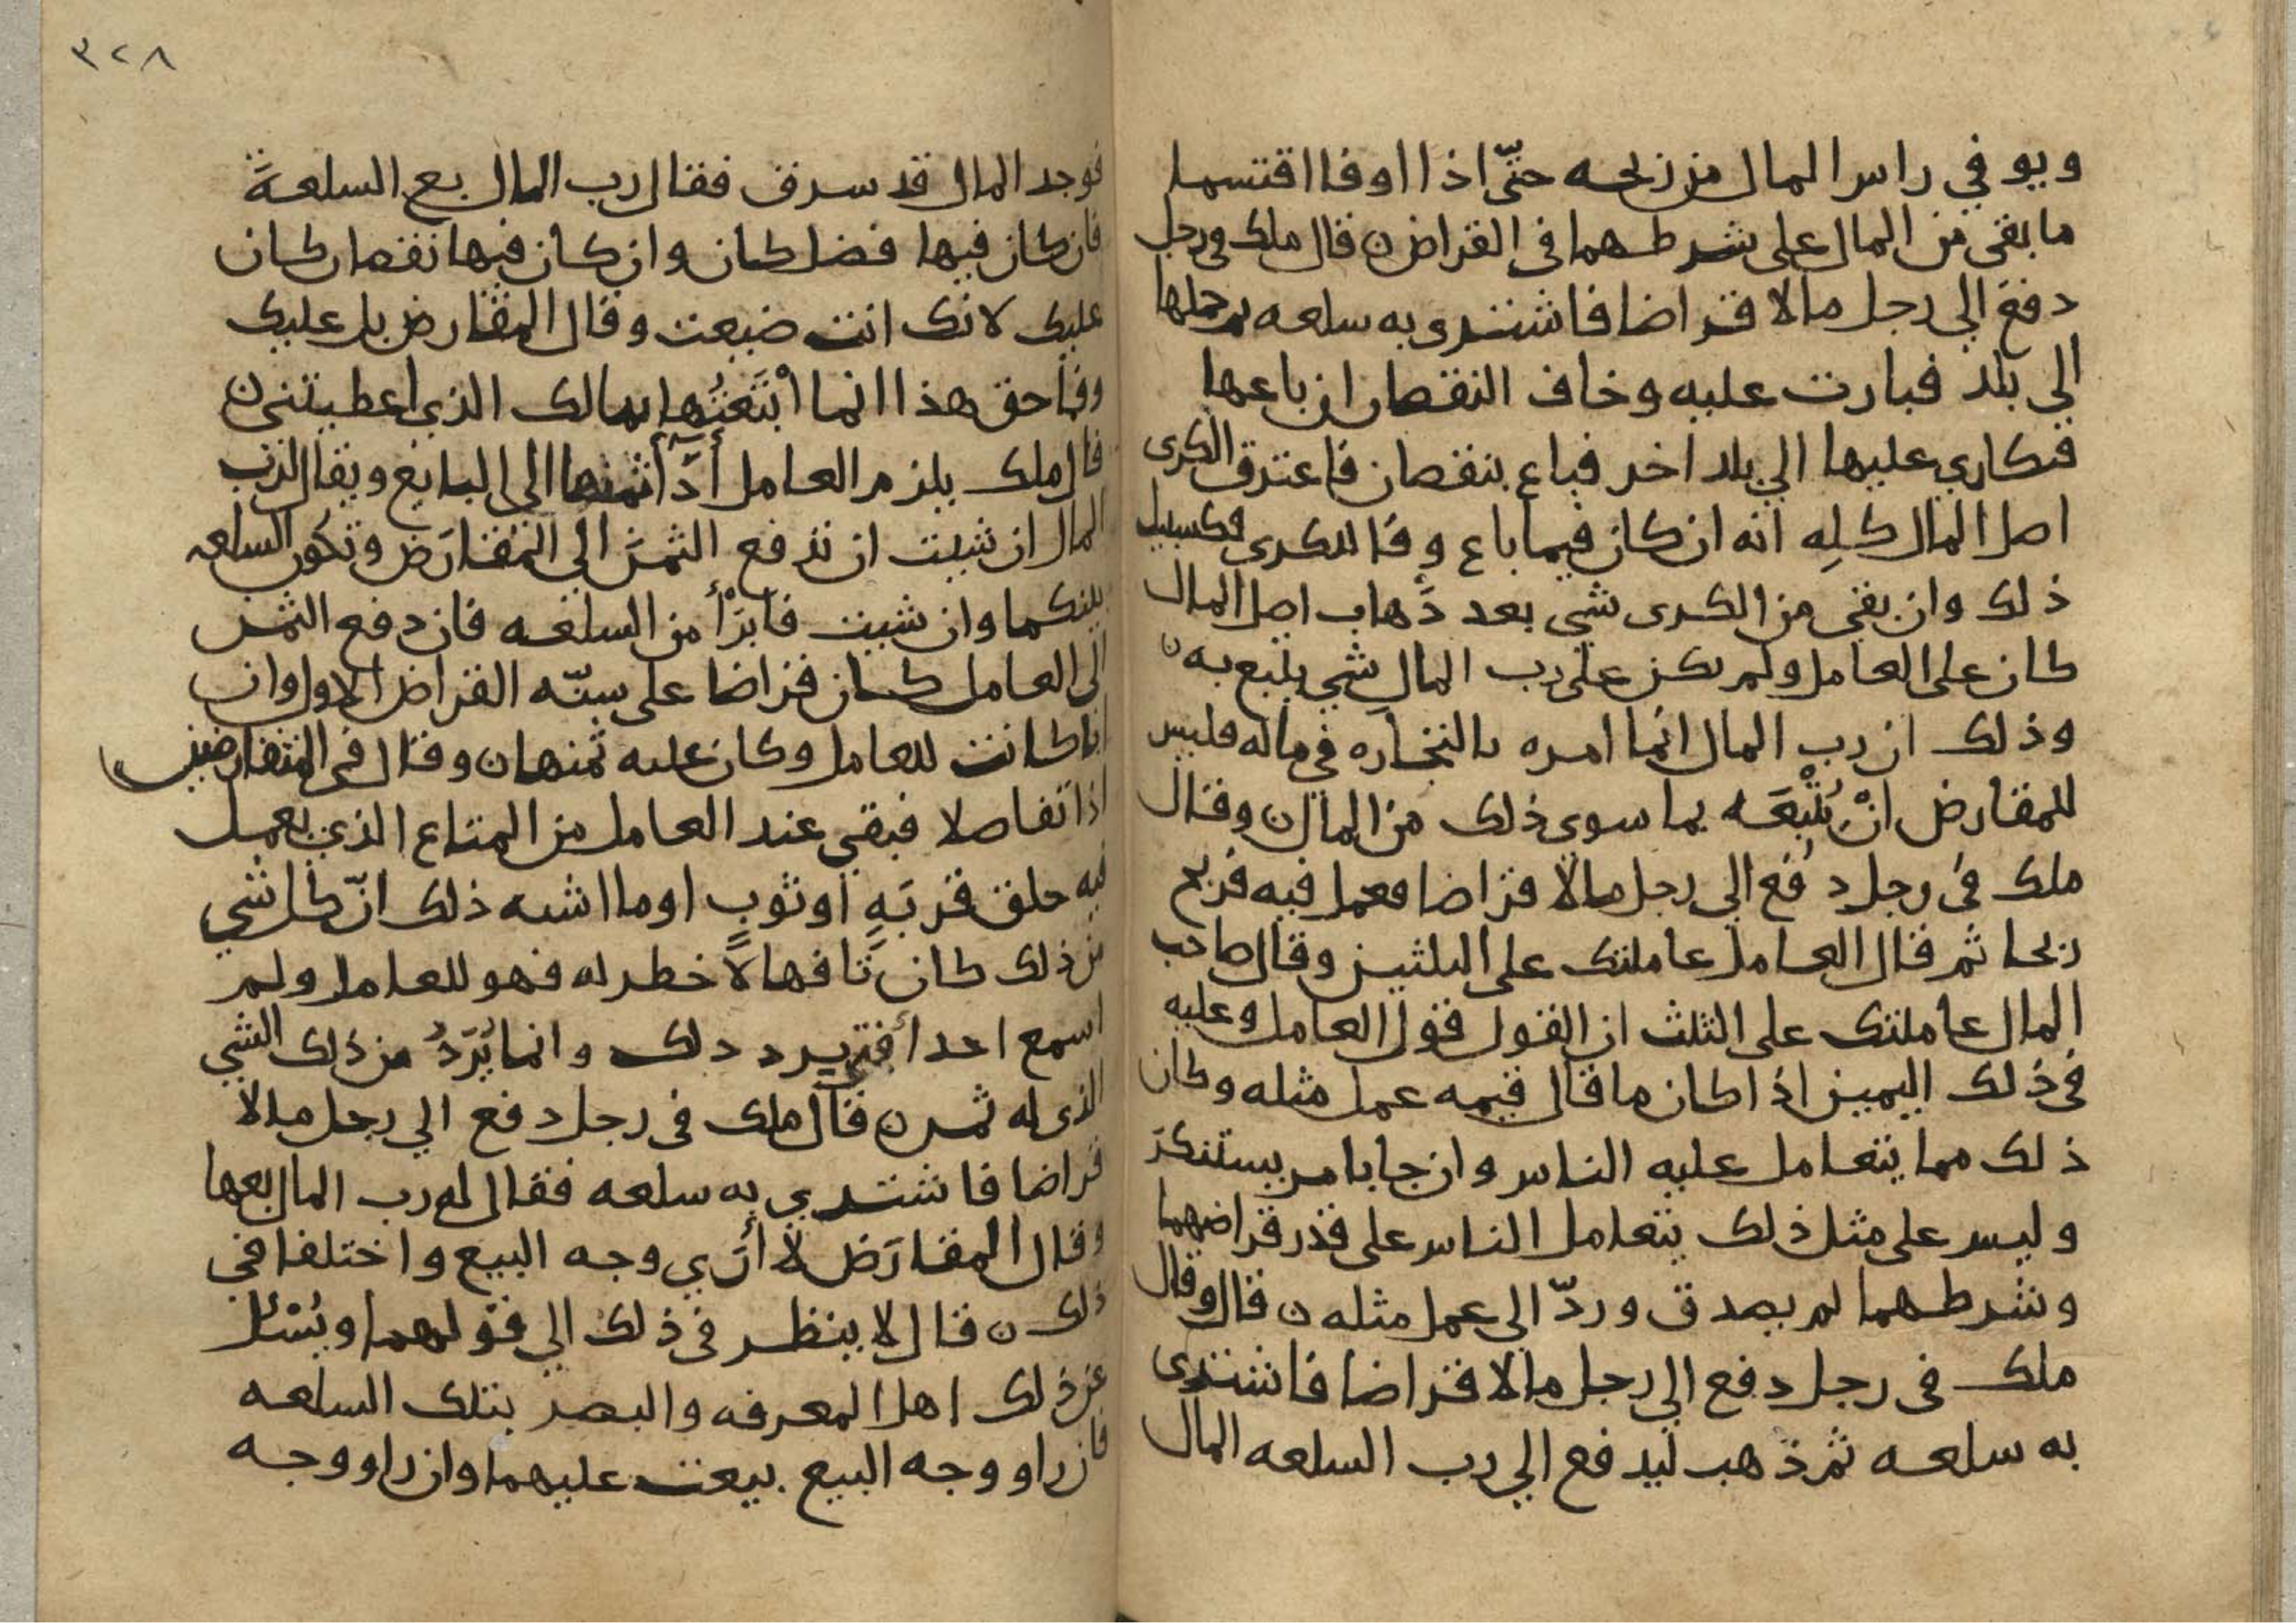 ويوفي راس المال من ربحه حتّى اذا اوفا اقتسما
ما بقي من المال على شرطهما في القراض ن قال ملك في رجل
دفع الي رجل مالا قراضا فاشترى به سلعه ثم حملها
الي بلد فبارت عليه وخاف النقصان ان باعها
فتكاري عليها الي بلد اخر فباع بنقصان فاغترق الكرى
اصل المال كلِه انه ان كان فيما باع وفا للكرى فكسبيل
ذلك وان بقى من الكرى شي بعد ذَهاب اصل المال
كان على العامل ولم يكن على رب المال شي يتبع به ن
وذلك ان رب المال انما امره بالتجاره في ماله فليس
للمقارض انْ يُتْبعَه بما سوي ذلك من المال ن وقال
ملك في رجل دُفع الي رجل مالا قراضا فعمل فيه فربح
ربحا ثم قال العامل عاملتك على الثلثين وقال صاحب
المال عاملتك على الثلث ان القول قول العامل وعليه
في ذلك اليمين اذا كان ما قال قيمه عمل مثله وكان
ذلك مما يتعامل عليه الناس وان جا بامر يستنكر
وليس على مثل ذلك يتعامل الناس على قدر قراضهما
وشرطهما لم يصدق وردّ الى عمل مثله ن قال وقال
ملك في رجل دفع الي رجل مالا قراضا فاشترى
به سلعه ثم ذهب ليدفع الي رب السلعه المال
٣٢٨
فوجد المال قد سرق فقال رب المال بع السلعةَ
فان كان فيها فضل كان وان كان فيها نقصان كان
عليك لانك انت ضيعت وقال المقارض بل عليك
وفا حق هذا انما اْبْتَعْتُها بمالك الذي اعطيتني ن
قال ملك يلزم العامل أدآ ثمنها الى البايع ويقال لرب
المال ان شيت ان تدفع الثمنَ الي المُقارَض وتكون السلعه
بينكما وان شيت فابْرَأْ من السلعه فان دفع الثمن
الى العامل كان قراضا على سنّه القراض الاول وان
ابا كانت للعامل وكان عليه ثمنها ن وقال في المتقارضين
اذا تفاصلا فبقي عند العامل من المتاع الذي يعمل
فيه خلق قربَهٍ او ثوبٍ او ما اشبه ذلك انّ كل شي
من ذلك كان تَافها لاَ خطر له فهو للعامل ولم
اسمع احدا أفتي برد ذلك وانما يُرَدُّ من ذلك الشي
الذي له ثمن ن قال ملك في رجل دفع الي رجل مالا
قراضا فاشتري به سلعه فقال له رب المال بعها
وقال المقارَض لا أرَي وجه البيع واختلفا في
ذلك ن قال لا ينظر في ذلك الي قولهما ويُسْئل
عن ذلك اهل المعرفه والبصر بتلك السلعه
فان راو وجه البيع بيعت عليهما وان راو وجه